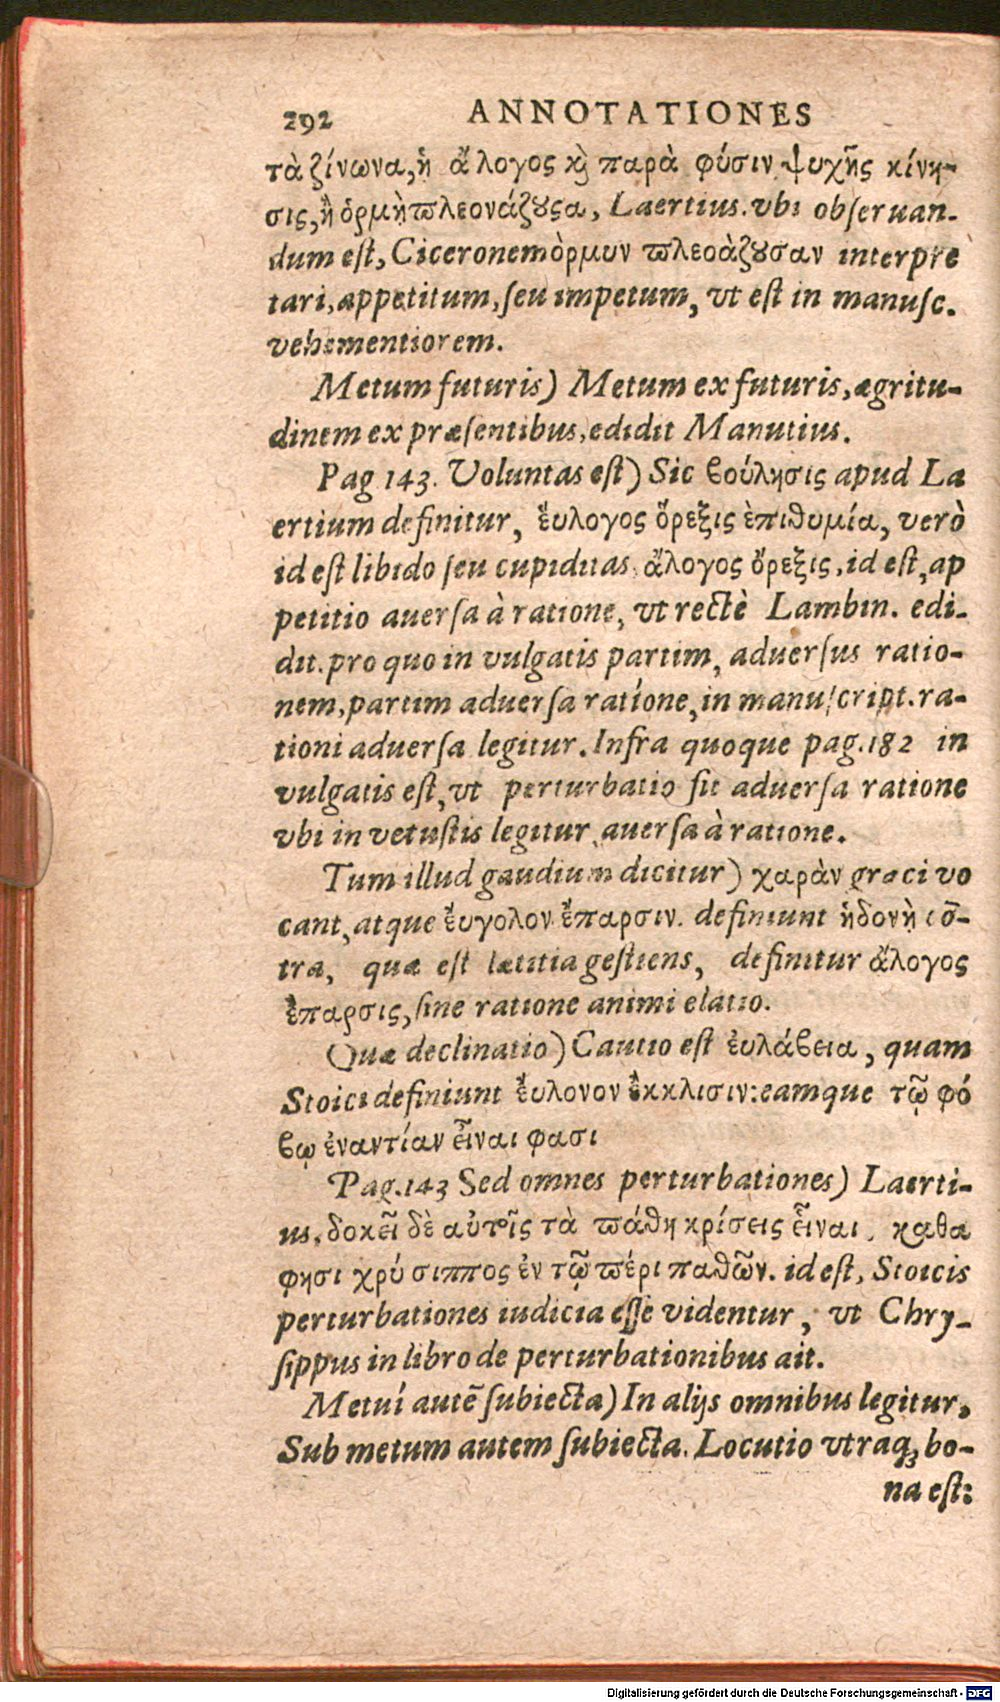 292 ANNOTATIONES
τὰ ζίνωνα, ἡ ἄ λογος ϗ παρὰ φύσιν ψυχῆς κίνη-
σις, ἢ ὁρμὴ ϖλεονάζȣσα, Laertius. vbi obſeruan-
dum eſt, Ciceronem ὸρμυν ϖλεοὰζȣσαν interpre
tari, appetitum, ſeu impetum, vt eſt in manuſc.
vehementiorem.
Metum futuris) Metum ex futuris, ægritu-
dinem ex præſentibus, edidit Manutius.
Pag 143. Voluntas eſt) Sic ϐούλησις apud La
ertium definitur, ἔυλογος ὄρεξις ὲπιθυμία, verò
id eſt libido ſeu cupiditas. ἄλογος ὄρεξις, id eſt, ap
petitio auerſa à ratione, vt rectè Lambin. edi-
dit. pro quo in vulgatis partim, aduerſus ratio-
nem, partim aduerſa ratione, in manuſcript. ra-
tioni aduerſa legitur. Infra quoque pag. 182 in
vulgatis eſt, vt perturbatio ſit aduerſa ratione
vbi in vetuſtis legitur, auerſa à ratione.
Tum illud gaudium dicitur) χαρὰν græci vo
cant, atque ἔυγολον ἔπαρσιν. definiunt ἡδονὴ cō-
tra, quæ eſt lætitia geſtiens, definitur ἄλογος
ἔπαρσις, ſine ratione animi elatio.
Quæ declinatio) Cautio eſt ἐυλάϐεια, quam
Stoici definiunt ἔυλονον ἔκκλισιν: eamque τῷ φό
ϐῳ ἐναντίαν εἶναι φασι
Pag. 143 Sed omnes perturbationes) Laerti-
us. δοκεῖ δὲ αὐτοῖς τὰ ϖάθη κρίσεις εἶναι, καθα
φησι χρύ σιππος ἐν τῷ ϖέρι παθῶν. id eſt, Stoicis
perturbationes iudicia eſſe videntur, vt Chry-
ſippus in libro de perturbationibus ait.
Metuí autē ſubiecta) In alijs omnibus legitur,
Sub metum autem ſubiecta. Locutio vtraq; bo-
na eſt:
Digitalisierung gefördert durch die Deutsche Forschungsgemeinschaft - DFG